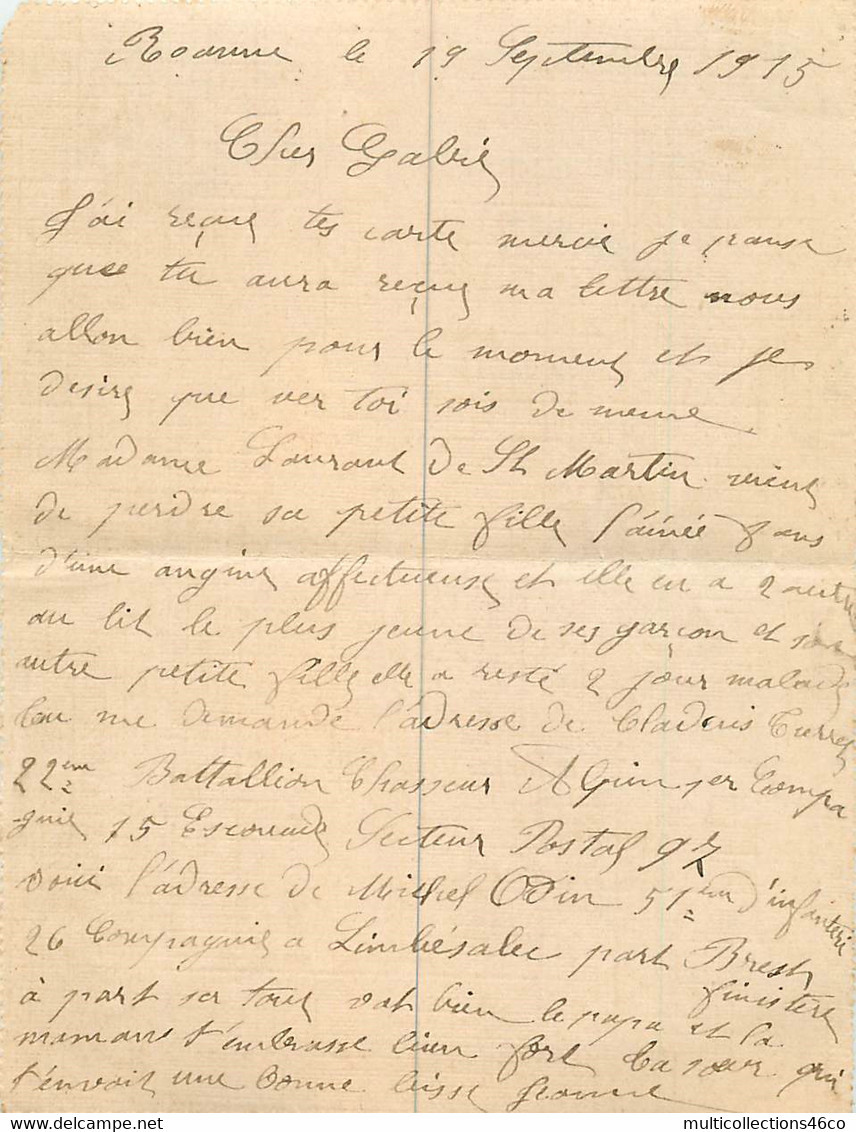 Roanne le 19 Septembre 1915
Cher Gabriel
J'ai reçue tes carte mercie je panse
que tu aura reçue ma lettre nous
allon bien pour le moment et je
desire que ver toi sois de meme
Madame Laurant de St Martin vient
de perdre sa petite fille l'ainée 7 ans
d'une angine affectueuse et elle en a 2 autre
au lit le plus jeune de ses garçon et son
autre petite fille elle a resté 2 jour malade
tu me demande l'adresse de Claudius
22ème Battallion Chasseur Alpin 1er Compa
gnie 15 Escouade Secteur Postal 97
voici l'adresse de Michel Odin 51ème d'infanterie
26 Compagnie a part Brest
Finistere
à part sa tout vat bien le papa et la
maman t'embrasse bien fort ta sœur qui
t'envoit une bonne bisse Jeanne
multicollections46co